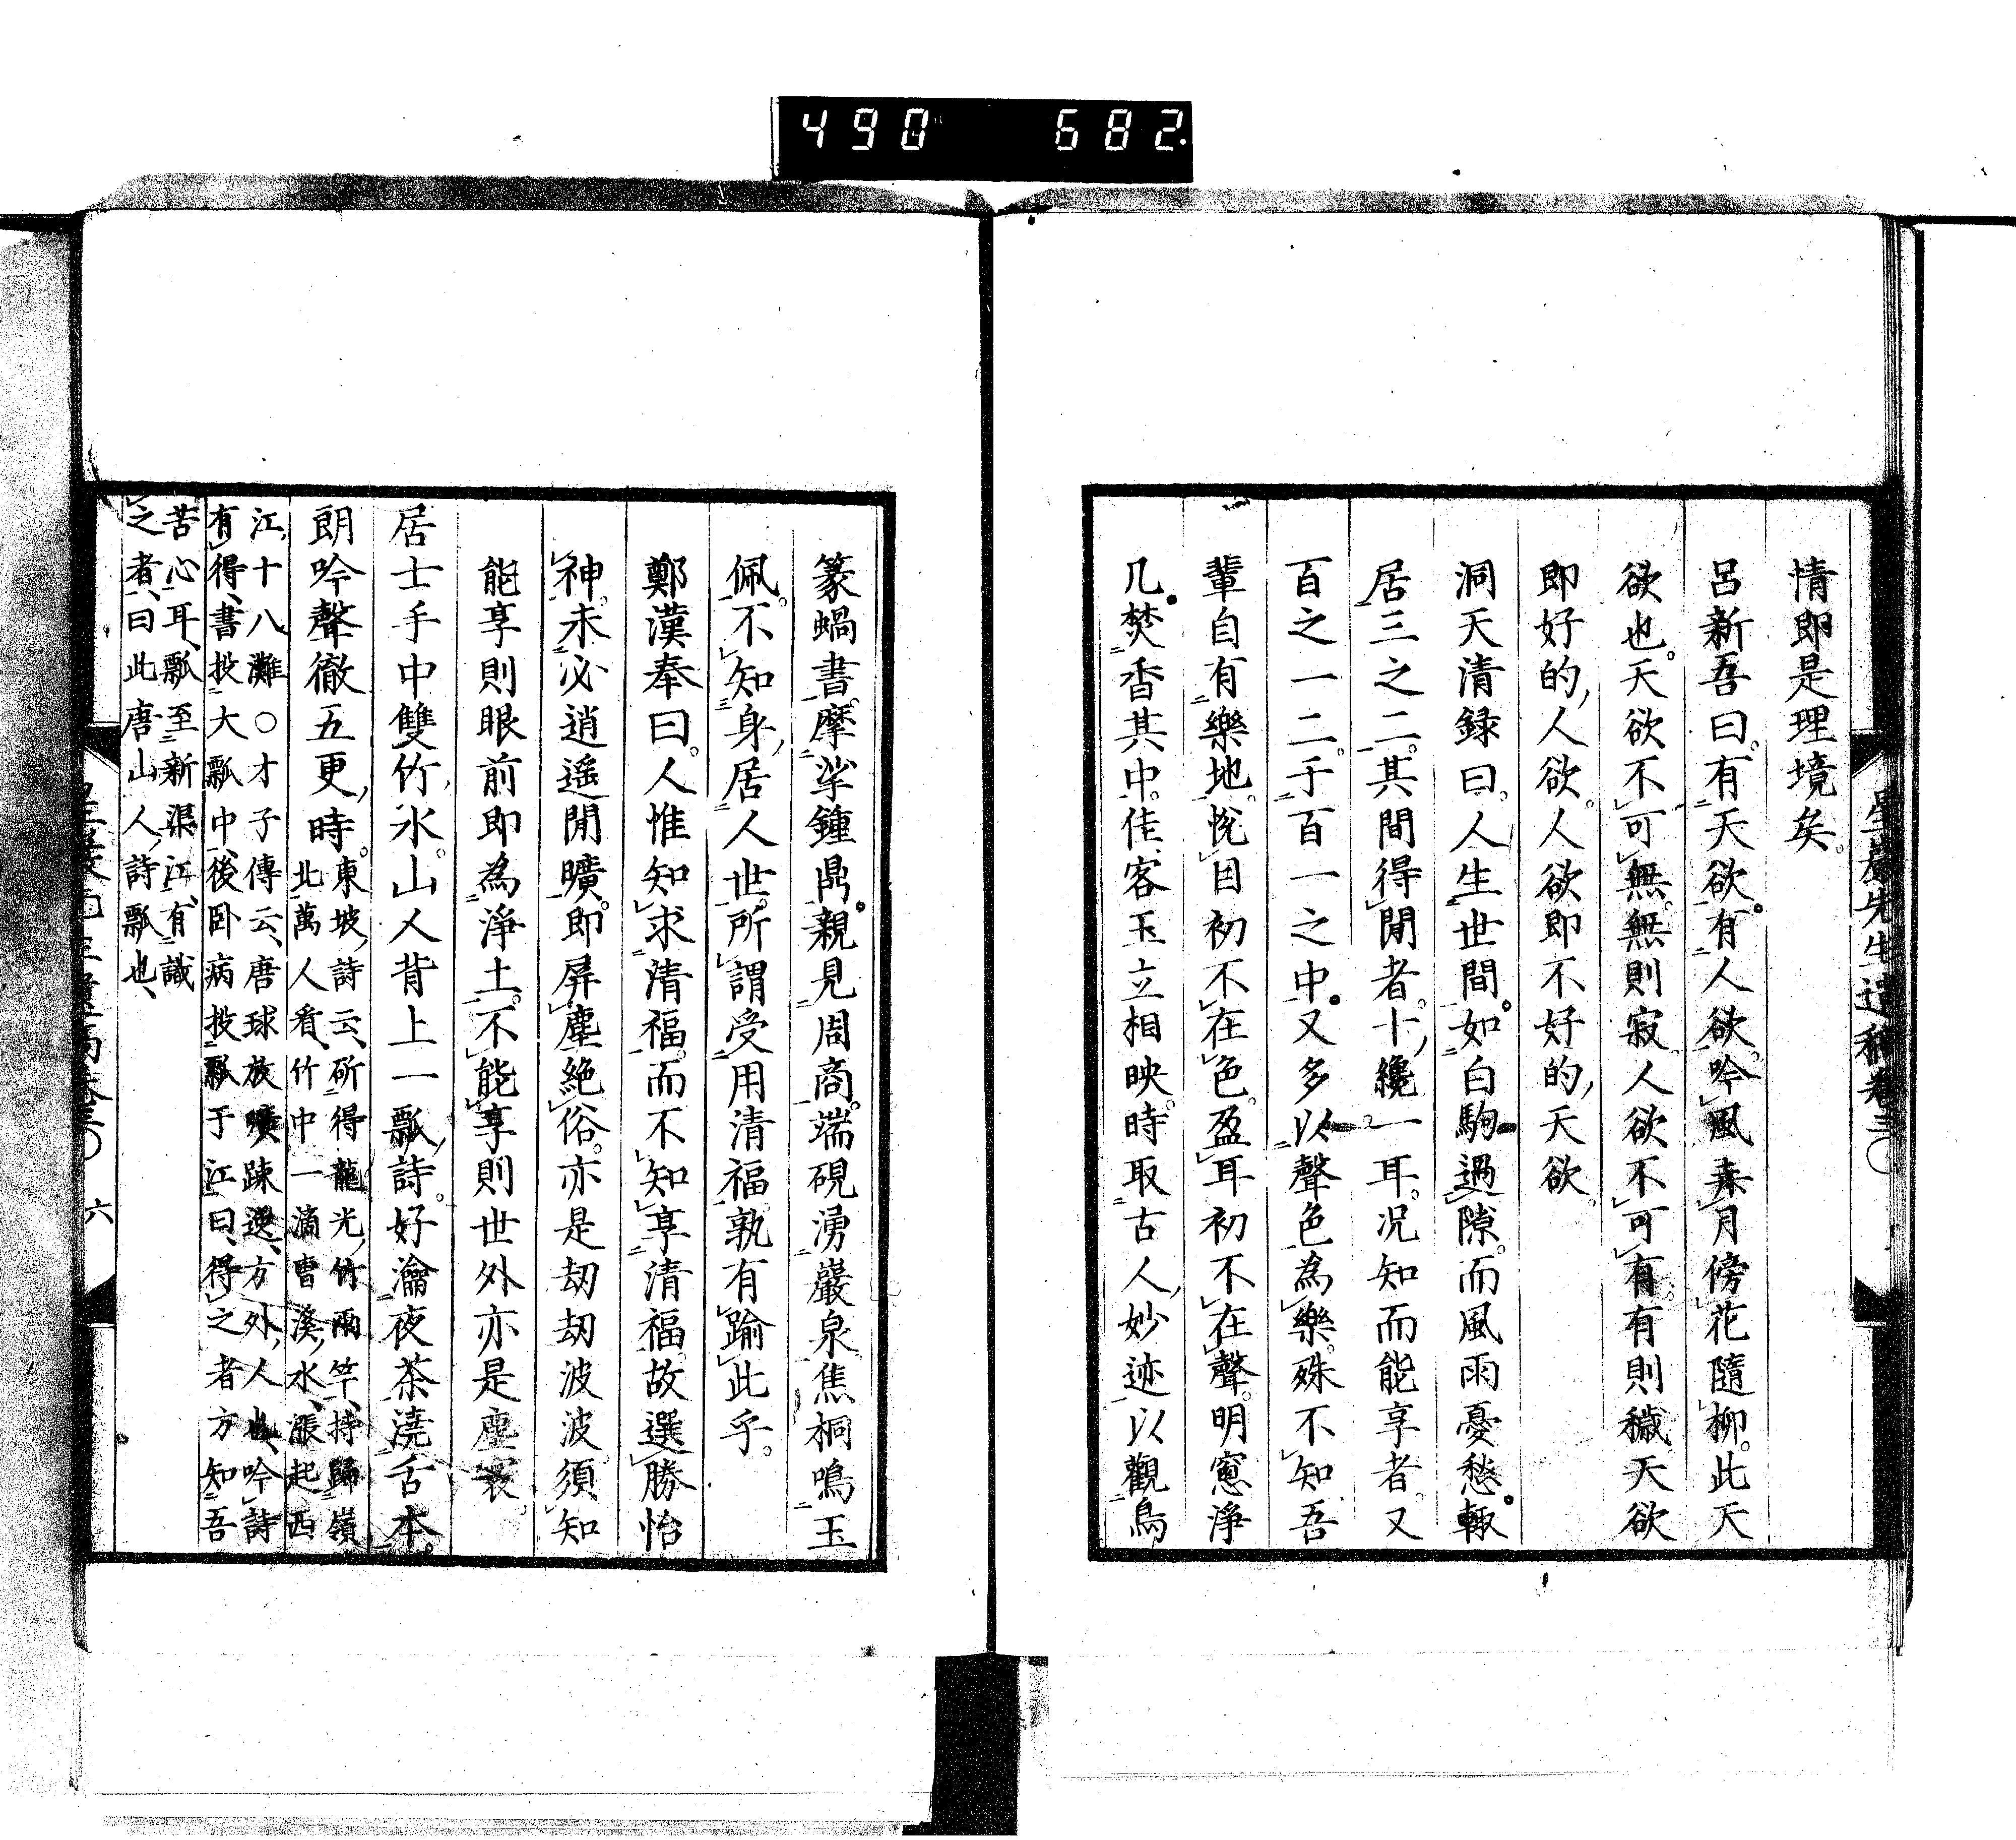 490 682
情即是理境矣。
呂新吾曰。有天欲。有人欲。吟風弄月傍花隨柳。此天
欲也。天欲不可無。無則寂。人欲不可有。有則穢。天欲
即好的人欲。人欲即不好的天欲。
洞天清録曰。人生世間。如白駒過隙。而風雨憂愁。輒
居三之二。其間得閒者。十纔一耳。况知而能享者。又
百之一二。于百一之中。又多以聲色為樂。殊不知吾
輩自有樂地。悅目初不在色。盈耳初不在聲。明窓淨
几。焚香其中。佳客玉立相映。時取古人妙迹以觀鳥
篆蝸書。摩挲鍾鼎。親見周商。端硯湧巖泉焦桐鳴玉
佩。不知身居人世。所謂受用清福。孰有踰此乎。
鄭漢奉曰。人惟知求清福。而不知享清福。故選勝怡
神。未必逍遙閒曠。即屏塵絶俗。亦是刼刼波波。須知
能享則眼前即為淨土。不能享則世外亦是塵寰。
居士手中雙竹。水山人背上一瓢詩。好瀹夜茶澆舌本。
朗吟聲徹五更時。東坡詩云、斫得龍光竹兩竿、持歸嶺
北萬人看、竹中一滴曹溪水、漲起西
江十八灘○才子傳云、唐球放曠踈逸、方外人也、吟詩
有得、書投大瓢中、後卧病投瓢于江曰、得之者方知吾
苦心耳、瓢至新渠江、有識
之者、曰此唐山人詩瓢也、
星巖先生遺稿卷三○
六